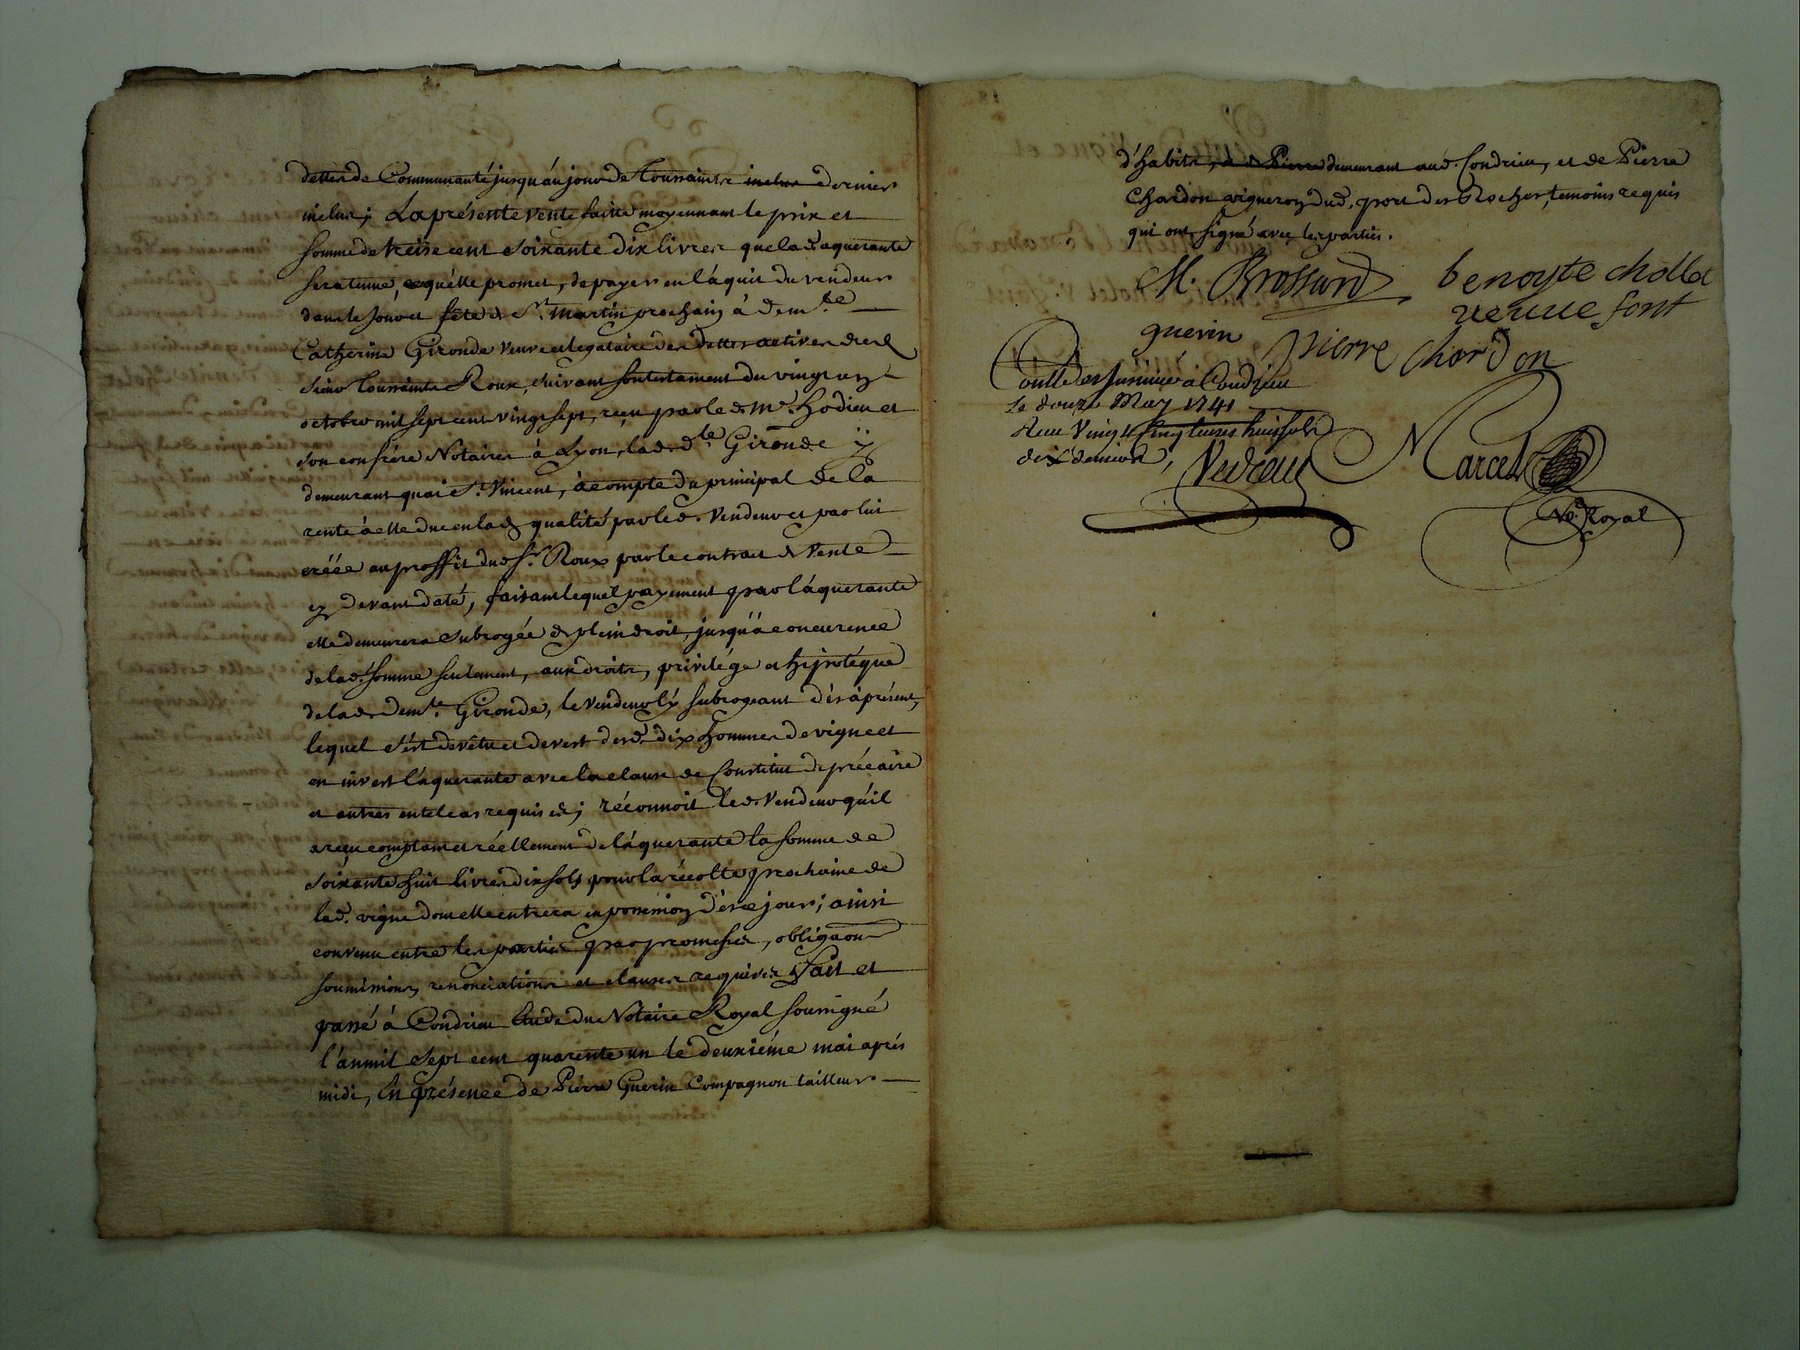 dettes de Communauté jusqu'au jour de Toussaints inclus dernier
inclus; La présente vente faitte moyennant le prix et
somme de treise cent soixante dix livres que lad. aquerante
sera tenue, et qu'elle promet, de payer en l'aquit du vendeur
dans le jour et fête de St. Martin prochain à dem.lle
Catherine Gironde veuve et legataire des dettes actives dud.
Sieur Toussaints Roux, suivant son testament du vingt un
octobre mil sept cent vingt sept, reçu par le d. Me. Hodieu et
son confrére Notaires à Lyon, lad. d.lle Gironde y
demeurant quai St. Vincent, à compte du principal de la
rente à elle due en lad. qualité par le d. Vendeur et par lui
créée au proffit dud. Sr. Roux par le contract de Vente
cy devant daté, faisant lequel payement par l'aquerante
elle demeurera subrogée de plein droit, jusqu'à concurence
de lad. somme seulement, aux droits, privilége et hipotéque
de lad. dem.lle Gironde, le Vendeur l'y subrogeant dès à présent,
lequel s'est devêtu et devest desd. dix hommes de vigne et
en invest l'aquerante avec la clause de Constitut de précaire
et autres en tel cas requises; réconnoit led. Vendeur qu'il
a reçu comptant et réellement de l'aquerante la somme de
soixante huit livres dix sols pour la récolte prochaine de
lad. vigne dont elle entrera en possession dès ce jour; ainsi
convenu entre les parties par promesses, obligaons
soumissions, renonciations et clauses requises, Fait et
passé à Condrieu Etude du Notaire Royal soussigné
l'an mil sept cent quarente un le deuxiéme mai aprés
midi, En présence de Pierre Guerin Compagnon tailleur
d'habits, et de Pierre demeurant aud. Condrieu, et de Pierre
Chardon vigneron dud. port des Rocher, temoins requis
qui ont signé avec les parties.
M. Brossard benoyte chollet
veuve font
guerin pierre chardon
Contlé et Insinué à Condrieu
le douze May 1741
Reçu Vingt Cinq livres huit sols
dix deniers, Vedeau Marcel
No.re Royal